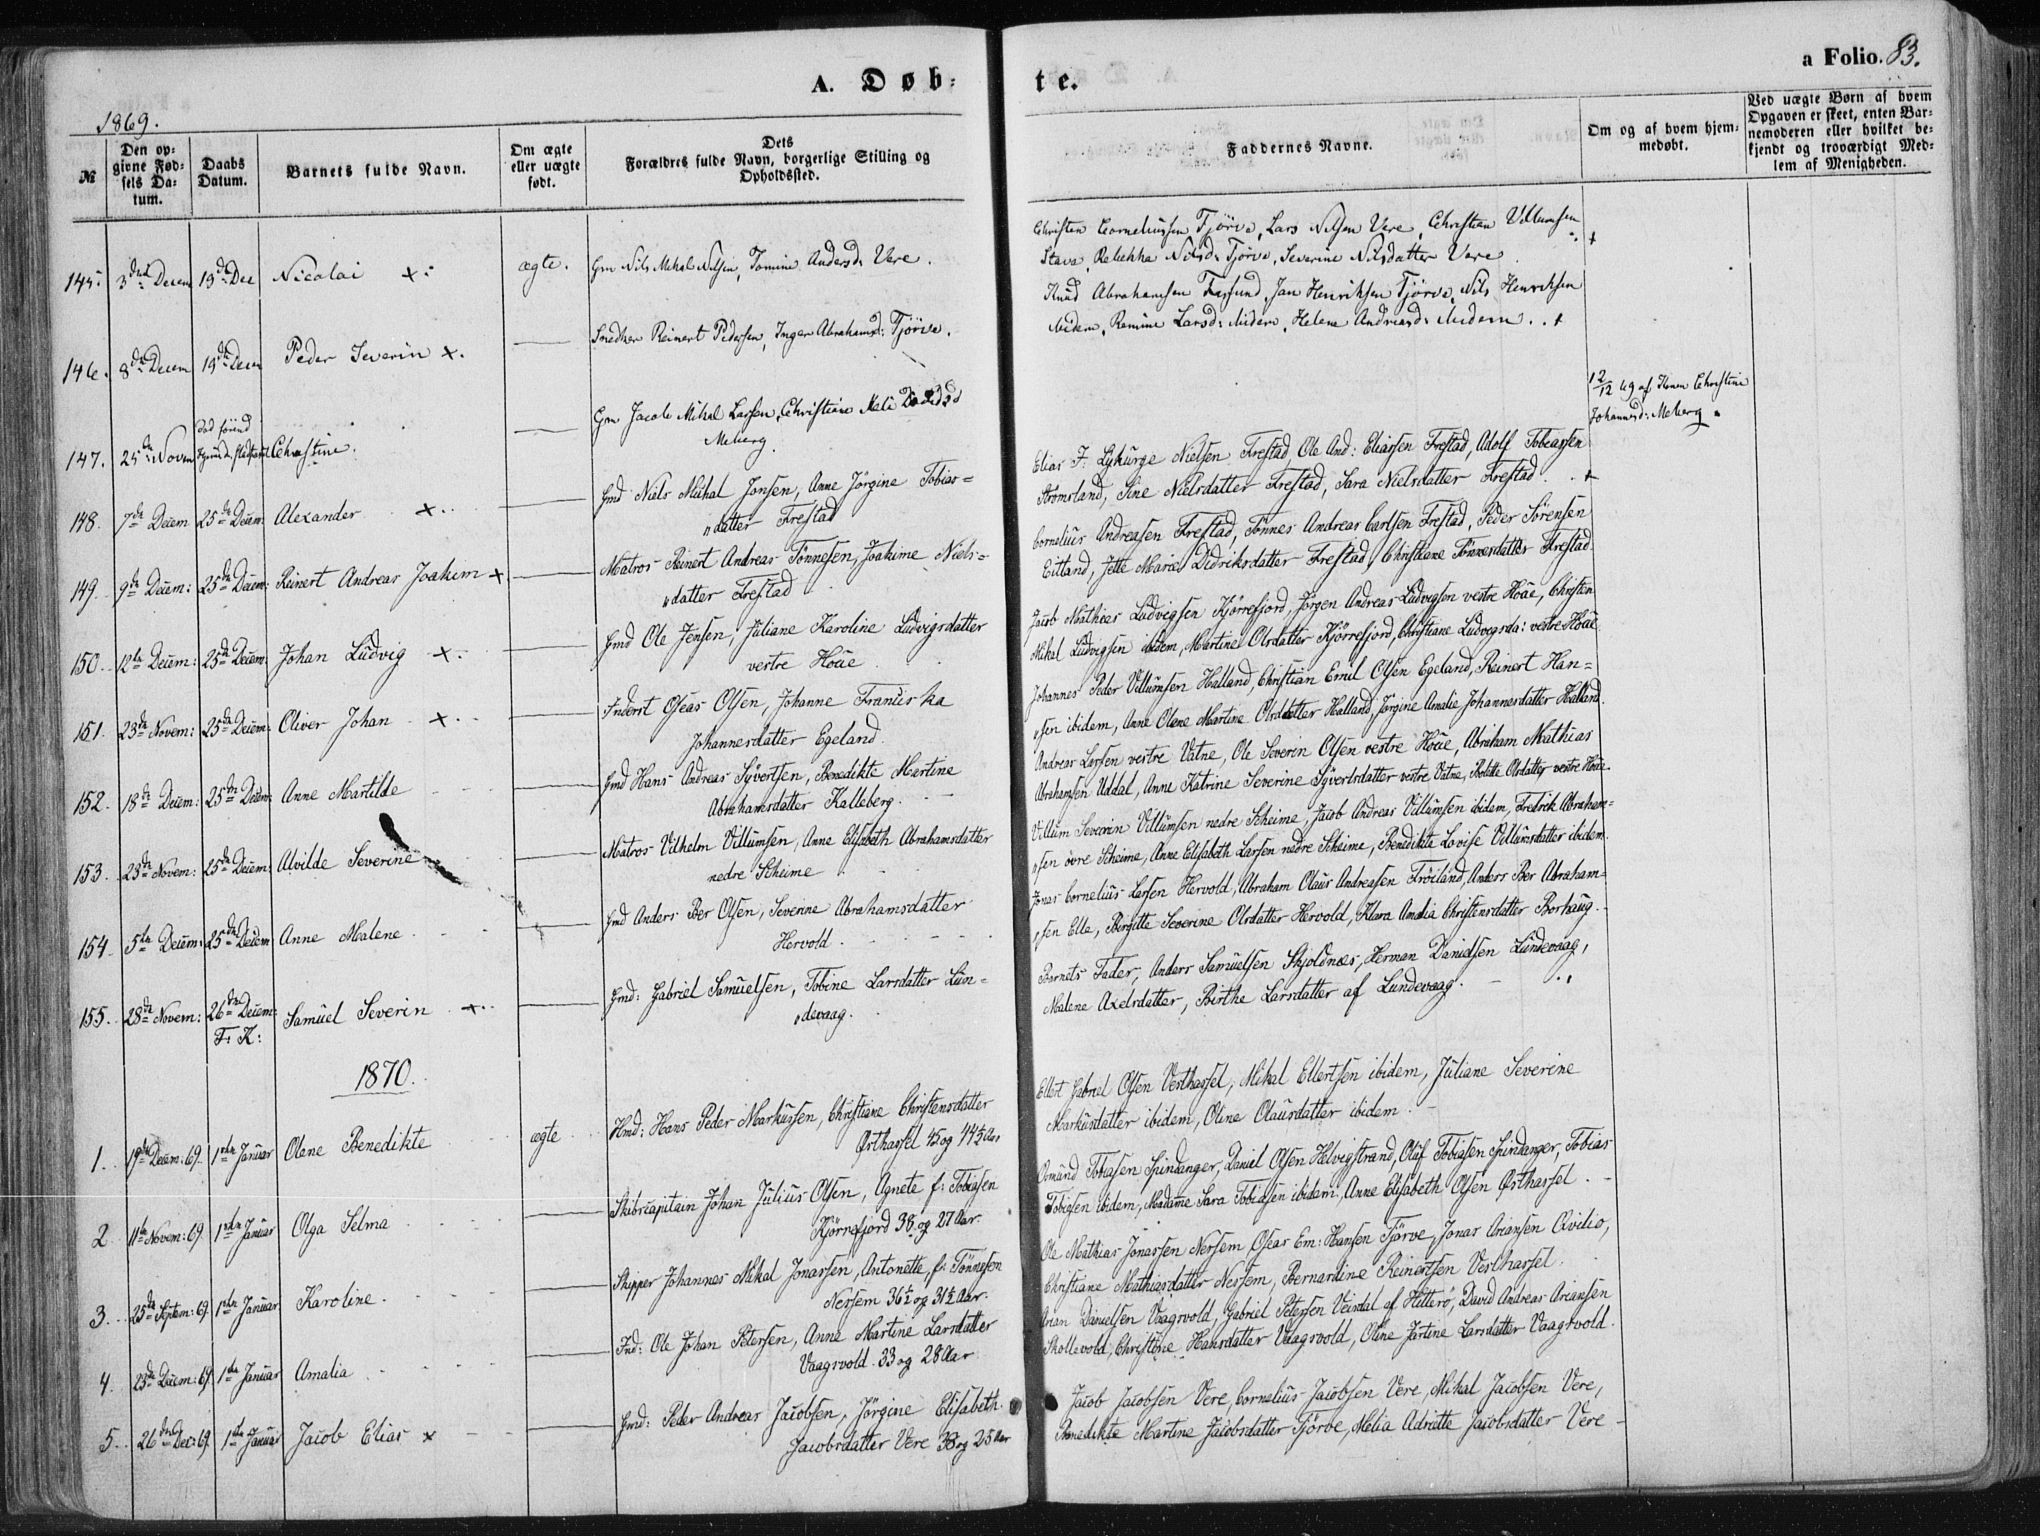 a Folio. 83.
A. Døb-
te.
1869.
№
Den op-
givne Fød-
sels Da-
tum.
Daabs
Datum.
Barnets fulde Navn.
Om ægte
eller uægte
født.
Dets
Forældres fulde Navn, borgerlige Stilling og
Opholdssted.
Faddernes Navne.
Om og af hvem hjem-
medøbt.
Ved uægte Børn af hvem
Opgaven er skeet, enten Bar-
nemoderen eller hvilket be-
kjendt og troværdigt Med-
lem af Menigheden.
145. 3die Decem 19de Dec Nicolai ægte. Gm Nils Mikal Nilsen, Tomine Andersd: Vere.
Christen Corneliussen Tjörve, Lars Nilsen Vere, Christian Villumsen
Stava, Rebekka Nilsd: Tjörve, Severine Nilsdatter Vere.
146. 8de Decem 19de Decem Peder Severin Snedker Reinert Pedersen, Inger Abrahamsd: Tjörve.
Knud Abrahamsen Farsund, Jan Henriksen Tjörve, Nils Henriksen
ibidem, Ramine Larsd: ibidem, Helene Andreasd: ibidem.
147. 25de Novem død förend Christine. Gm Jacob Mikal Larsen, Christiane Meberg
12/12 69 af Christine
Johannesd: Meberg
148. 7de Decem 25de Decem: Alexander Gmd Niels Mikal Jonsen, Anne Jörgine Tobias-
datter Frestad
Elias F: Lykurge Nielsen Frestad, Ole And: Eliassen Frestad, Adolf Tobiassen
Strömsland, Sine Nielsdatter Frestad, Sara Nielsdatter Frestad.
149. 9de Decem: 25de Decem: Reinert Andreas Joakim Matros Reinert Andreas Tönnesen, Joakime Niels-
datter Frestad
Cornelius Andreasen Frestad, Tönnes Andreas Carlsen Frestad, Peder Sörensen
Eitland, Jette Marie Didriksdatter Frestad, Christiane Tönnesdatter Frestad
150. 12te Decem: 25de Decem: Johan Ludvig Gmd Ole Jensen, Juliane Karoline Ludvigsdatter
vestre Houe
Jacob Mathias Ludvigsen Kjörrefjord, Jörgen Andreas Ludvigsen vestre Houe, Christen
Mikal Ludvigsen ibidem, Martine Olsdatter Kjörrefjord, Christiane Ludvigsda: vestre Houe
151. 23de Novem: 25de Decem: Oliver Johan Inderst Oseas Olsen, Johanne Franciska
Johannesdatter Egeland
Johannes Peder Villumsen Halland, Christian Emil Olsen Egeland, Reinert Han-
sen ibidem, Anne Olene Martine Olsdatter Halland, Jörgine Amalie Johannesdatter Halland.
152. 18de Decem: 25de Decem: Anne Martilde Gmd Hans Andreas Syvertsen, Benedikte Martine
Abrahamsdatter Kalleberg.
Andreas Larsen vestre Vatne, Ole Severin Olsen vestre Houe, Abraham Mathias
Abrahamsen Uddal, Anne Katrine Severine Syvertsdatter vestre Vatne, Olsdatter vestre Houe.
153. 23de Novem: 25de Decem: Alvilde Severine Matros Vilhelm Villumsen, Anne Elisabeth Abrahamsdatter
nedre Skeime
Villum Severin Villumsen nedre Skeime, Jacob Andreas Villumsen ibidem, Fredrik Abraham-
sen övre Skeime, Anne Elisabeth Larsen nedre Skeime, Benedikte Lovise Villumsdatter ibidem.
154. 5te Decem: 25de Decem Anne Malene Gmd Anders Ber Olsen, Severine Abrahamsdatter
Hervold.
Jonas Cornelius Larsen Hervold, Abraham Olaus Andreasen Fröiland, Anders Ber Abraham-
sen Elle, Birgitte Severine Olsdatter Hervold, Klara Amalia Christensdatter Borhaug.
155. 28de Novem: 26de Decem: F: K: Samuel Severin Gmd: Gabriel Samuelsen, Tobine Larsdatter Lun-
devaag.
Barnets Fader, Anders Samuelsen Skjoldnæs, Herman Danielsen Lundevaag,
Malene Axelsdatter, Birthe Larsdatter af Lundevaag.
1870.
1. 19de Decem: 69. 1ste Januar Olene Benedikte ægte Hmd: Hans Peder Markussen, Christiane Christensdatter
Østhassel 45 og 44½ Aar
Ellert Gabriel Olsen Vesthassel, Mikal Ellertsen ibidem, Juliane Severine
Markusdatter ibidem, Oline Olausdatter ibidem.
2 11te Novem: 69 1ste Januar Olga Selma Skibscapitain Johan Julius Olsen, Agnete f: Tobiasen
Kjörrefjord 38 og 27 Aar.
Osmund Tobiasen Spindanger, Daniel Olsen Helvigstrand, Olaf Tobiasen Spindanger, Tobias
Tobiesen ibidem, Madame Sara Tobiasen ibidem, Anne Elisabeth Olsen Østhassel.
3. 25de Septem: 69 1ste Januar Karoline. Skipper Johannes Mikal Jonassen, Antonette, f: Tönnesen
Nessem 36½ og 31½ Aar.
Ole Mathias Jonassen Nessem Oseas Em: Hansen Tjörve, Jonas Ariansen Qvilio,
Christiane Mathiasdatter Nessem, Bernardine Reinertsen Vesthassel.
4. 23de Decem: 69 1ste Januar Amalia Ind: Ole Johan Petersen, Anne Martine Larsdatter
Vaagsvold. 33 og 28 Aar
Arian Danielsen Vaagsvold, Gabriel Petersen Veisdal af Hitterö, David Andreas Ariansen
Skollevold, Christine Hansdatter Vaagsvold, Oline Jartine Larsdatter Vaagsvold.
5. 26de Dec: 69 1ste Januar Jacob Elias Gmd: Peder Andreas Jacobsen, Jörgine Elisabeth
Jacobsdatter Vere 38 og 25 Aar
Jacob Jacobsen Vere, Cornelius Jacobsen Vere, Mikal Jacobsen Vere,
Benedikte Martine Jacobsdatter Tjörve, Melia Adriette Jacobsdatter Vere